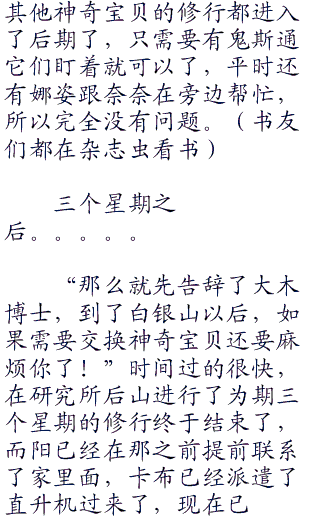 其他神奇宝贝的修行都进入
了后期了，只需要有鬼斯通
它们盯着就可以了，平时还
有娜姿跟奈奈在旁边帮忙，
所以完全没有问题。（书友
们都在杂志虫看书）
三个星期之
后。。。。。
“那么就先告辞了大木
博士，到了白银山以后，如
果需要交换神奇宝贝还要麻
烦你了！”时间过的很快，
在研究所后山进行了为期三
个星期的修行终于结束了，
而阳已经在那之前提前联系
了家里面，卡布已经派遣了
直升机过来了，现在已